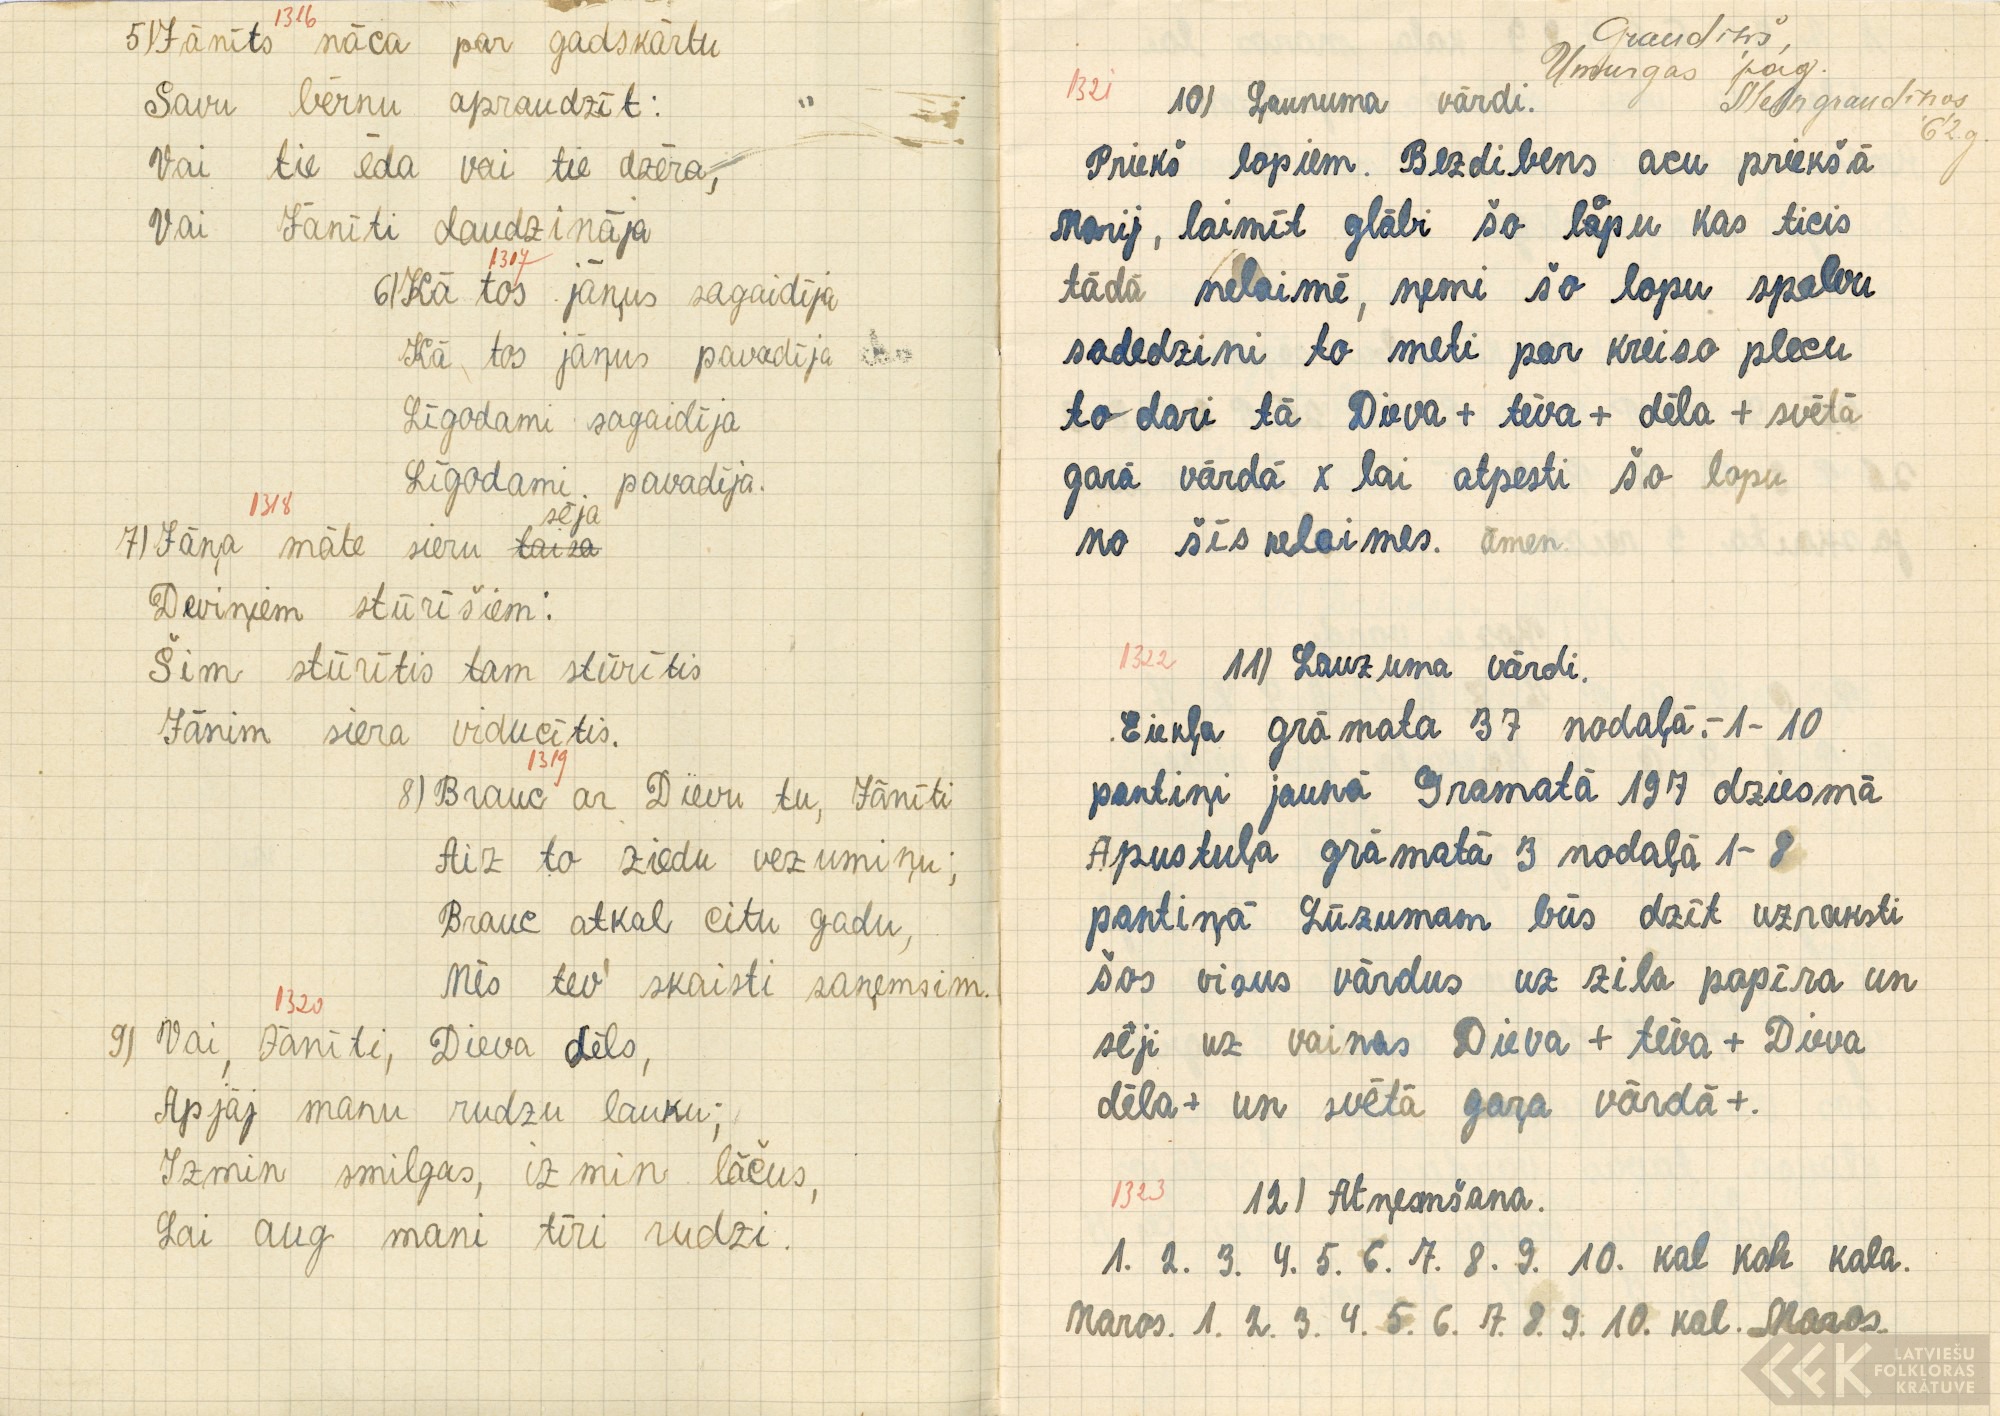 1316
5) Jānīts nāca par gadskārtu
Savu bērnu apraudzīt:
Vai tie ēda vai tie dzēra,
Vai Jānīti daudzināja
1317
6) Kā tos jāņus sagaidīja
Kā tos jāņus pavadīja
Līgodami sagaidīja
Līgodami pavadīja.
1318
sēja
7) Jāņa māte sieru taisa
Deviņiem stūrīšiem:
Šim stūrītis tam stūrītis
Jānim siera viducītis.
1319
8) Brauc ar Dievu tu, Jānīti
Aiz to ziedu vezumiņu;
Brauc atkal citu gadu,
Mēs tev' skaisti saņemsim.
1320
9) Vai, Jānīti, Dieva dēls,
Apjāj manu rudzu lauku;
Izmin smilgas, izmin lāčus,
Lai aug mani tīri rudzi.
Graudiņš,
Umurgas pag.
62g.
1321
10) Ļaunuma vārdi.
Priekš lopiem. Bezdibens acu priekšā
Marij, laimīt glābi šo lopu kas ticis
tādā nelaimē, ņemi šo lopu spalvu
sadedzini to meti par kreiso plecu
to dari tā Dieva + tēva + dēla + svētā
garā vārdā x lai atpesti šo lopu
no šīs nelaimes. āmen.
1322
11) Lauzuma vārdi.
Eiekļa grāmata 37 nodaļā.-1-10
pantiņi jaunā Gramatā 197 dziesmā
Apustuļa grāmatā 3 nodaļā 1-8
pantiņā Lūzumam būs dzīt uzraksti
šos visus vārdus uz zila papīra un
sēji uz vainas Dieva + tēva + Dieva
dēla + un svētā gaŗa vārdā +.
1323
12) Atņemšana.
1. 2. 3. 4. 5. 6. 7. 8. 9. 10. kal kala.
Maros. 1. 2. 3. 4. 5. 6. 7. 8. 9. 10. kal. Maros.
LATVIEŠU
FOLKLORAS
KRĀTUVE